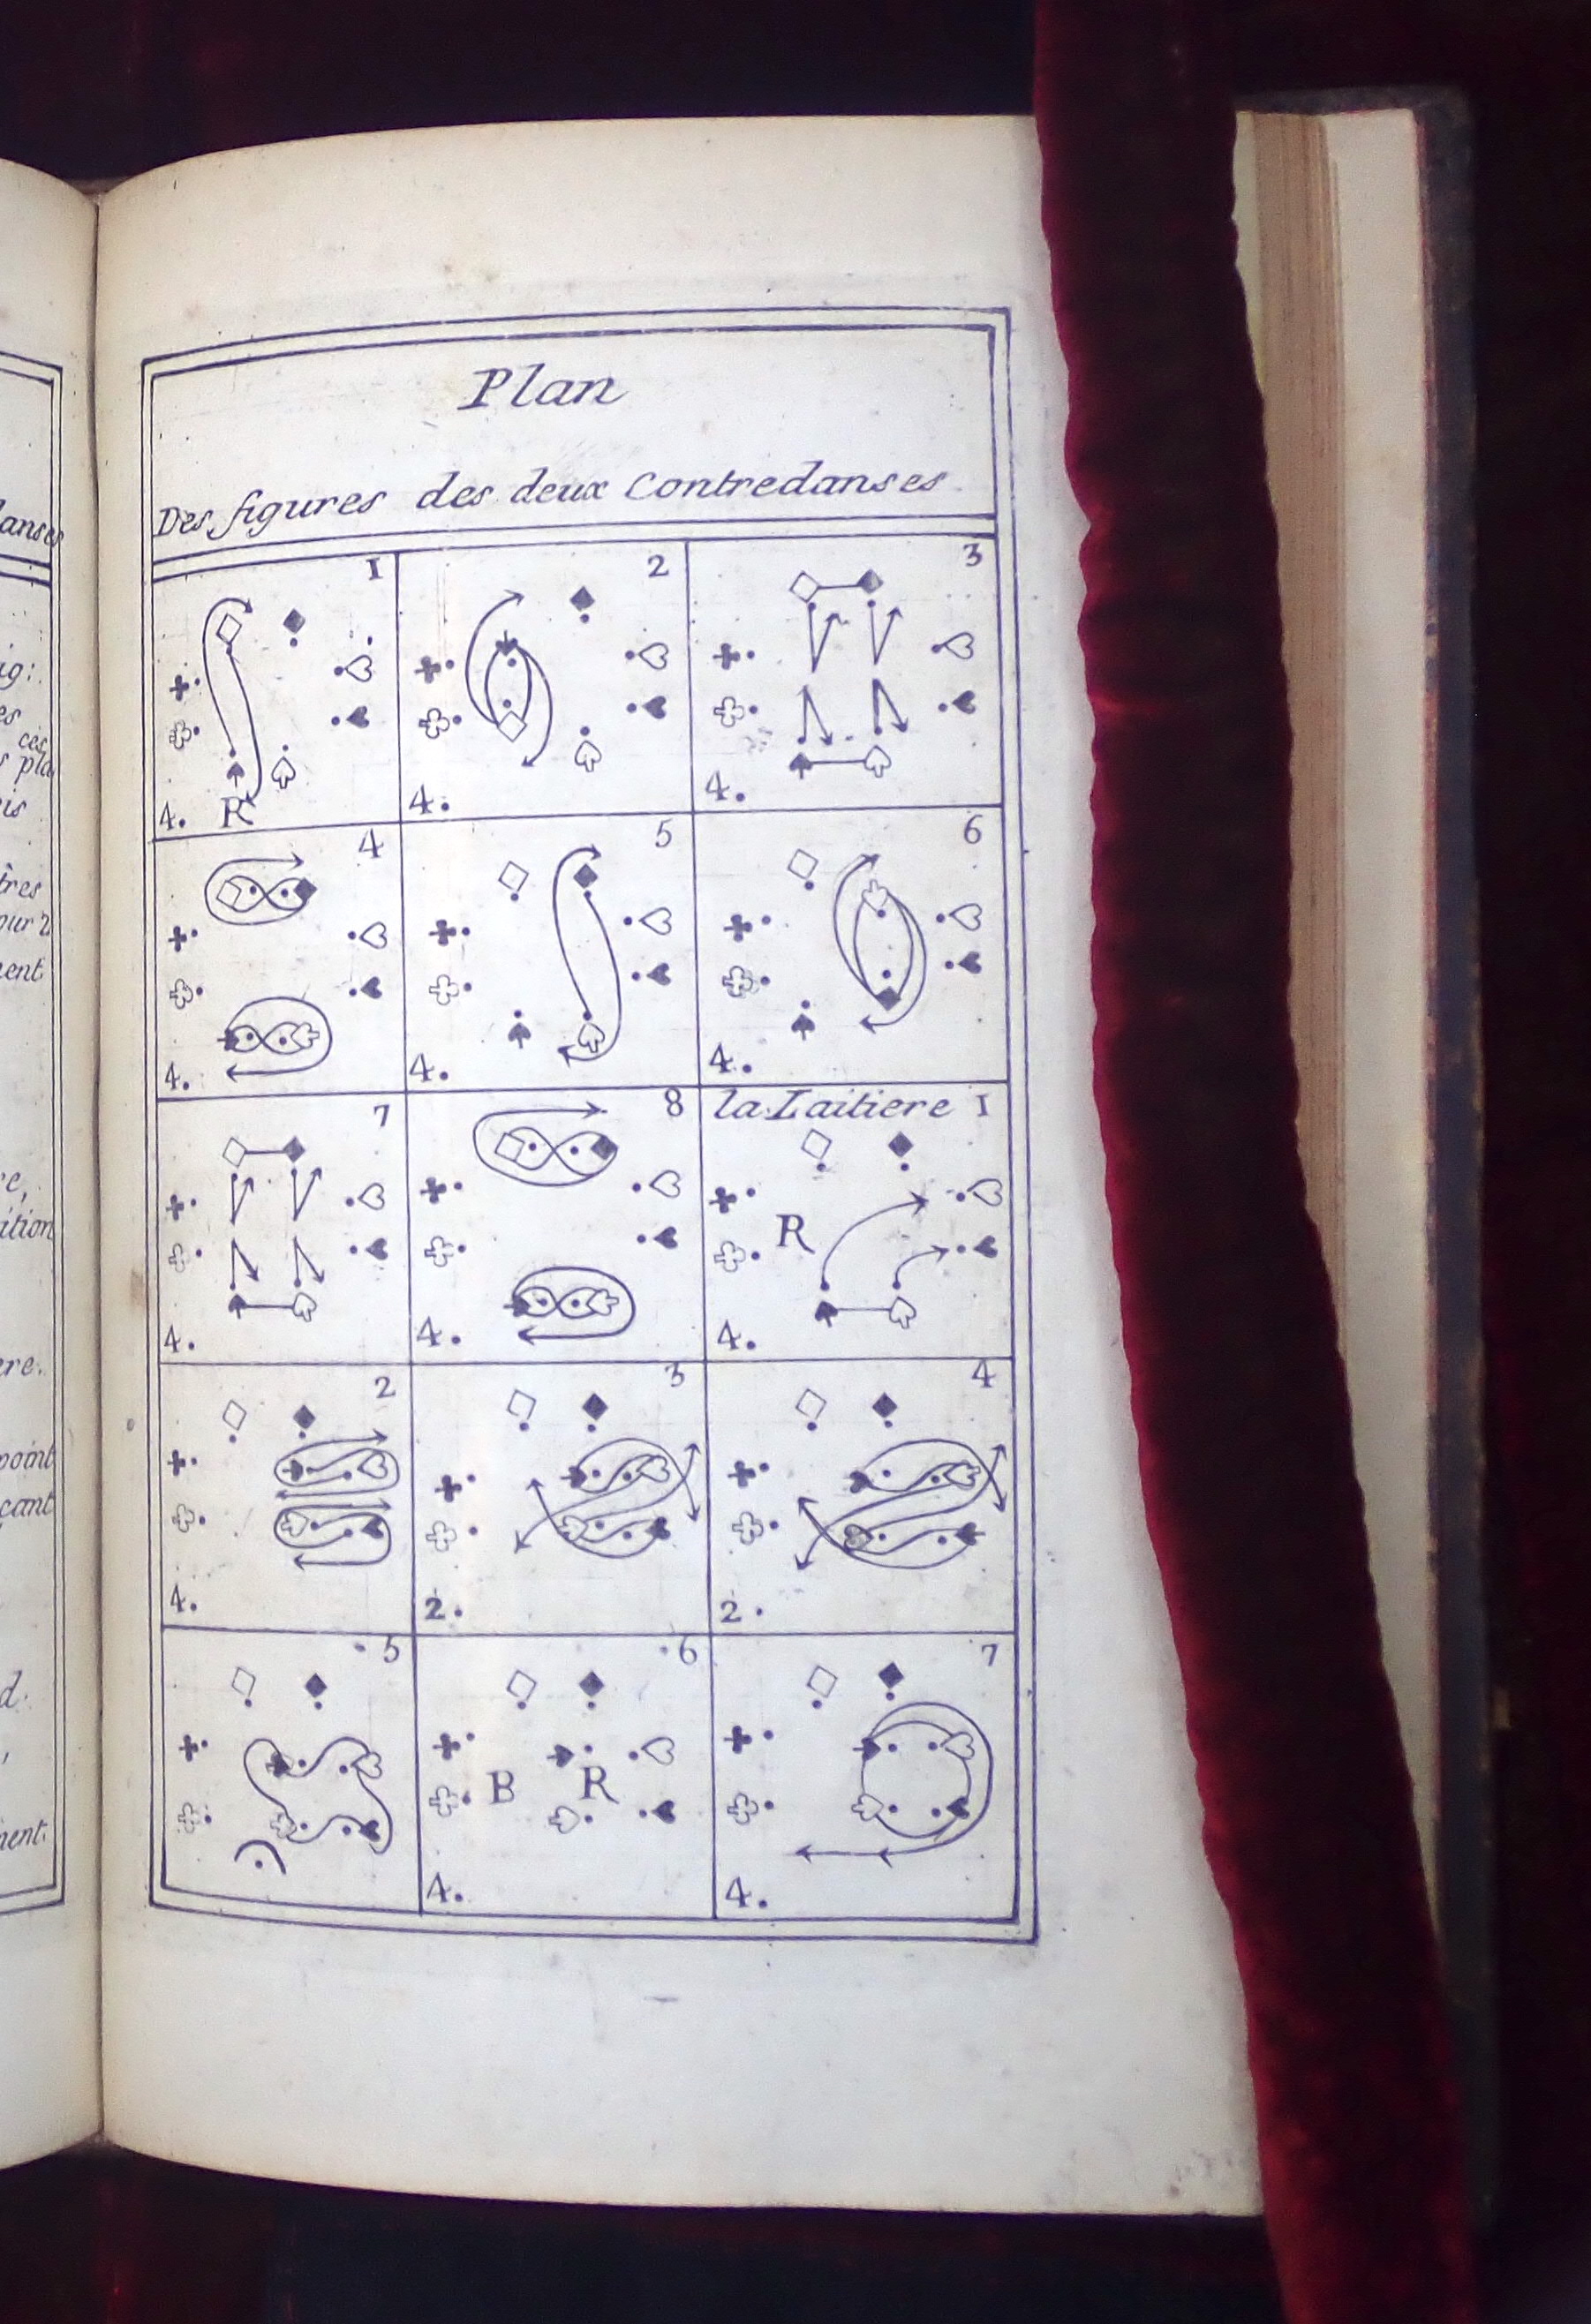 Plan
Des figures des deux Contredanses
1
2
3
4. R
4.
4.
4
5
6
4.
4.
4.
7
8
la Laitiere 1
R
4.
4.
4.
2
3
4
4.
2.
2.
5
6
7
B R
4.
4.
anses
ig:
es
ces
pla
is
tres
our 2
ent
re,
ition
ere.
point
cant
d.
,
ment.